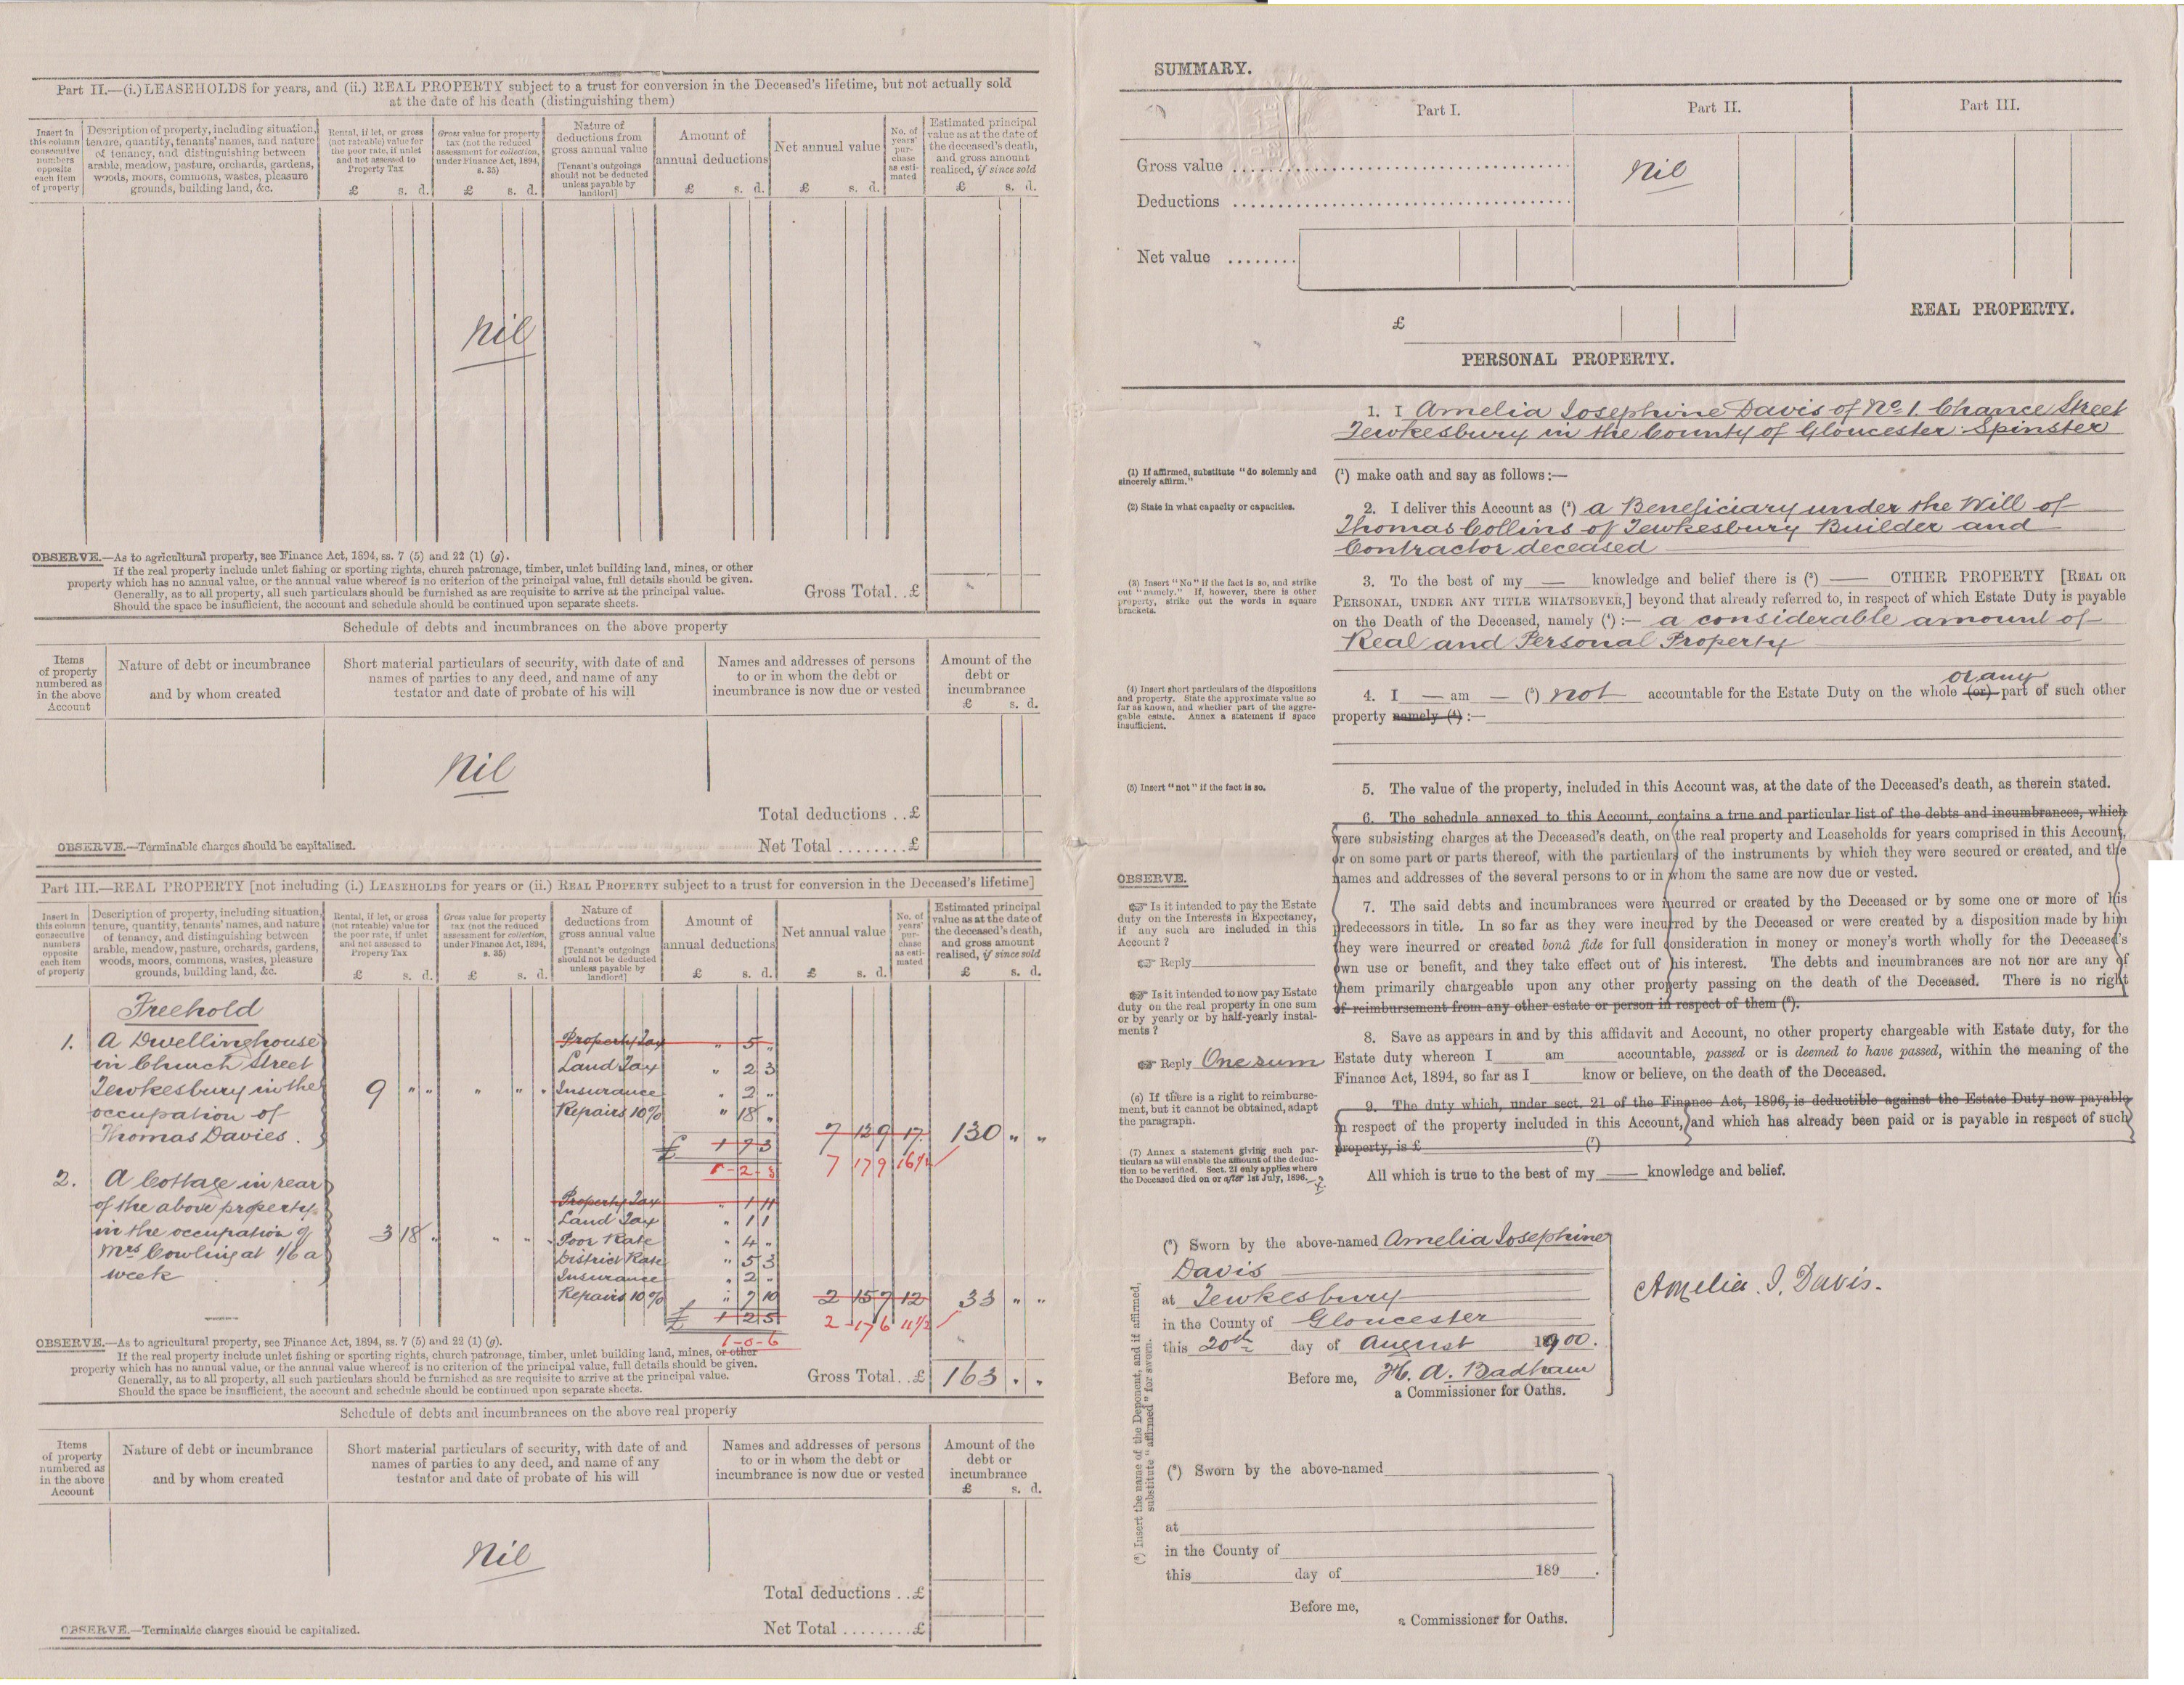 Part II.—(i.) LEASEHOLDS for years, and (ii.) REAL PROPERTY subject to a trust for conversion in the Deceased's lifetime, but not actually sold
at the date of his death (distinguishing them)
Insert in this column consecutive numbers opposite each item of property
Description of property, including situation, tenure, quantity, tenants' names, and nature of tenancy, and distinguishing between arable, meadow, pasture, orchards, gardens, woods, moors, commons, wastes, pleasure grounds, building land, &c.
Rental, if let, or gross (not rateable) value for the poor rate, if unlet and not assessed to Property Tax
£ s. d.
Gross value for property tax (not the reduced assessment for collection, under Finance Act, 1894, s. 35)
£ s. d.
Nature of deductions from gross annual value
[Tenant's outgoings should not be deducted unless payable by landlord]
Amount of annual deductions
£ s. d.
Net annual value
£ s. d.
No. of years' purchase as estimated
Estimated principal value as at the date of the deceased's death, and gross amount realised, if since sold
£ s. d.
Nil
OBSERVE.—As to agricultural property, see Finance Act, 1894, ss. 7 (5) and 22 (1) (g).
If the real property include unlet fishing or sporting rights, church patronage, timber, unlet building land, mines, or other
property which has no annual value, or the annual value whereof is no criterion of the principal value, full details should be given.
Generally, as to all property, all such particulars should be furnished as are requisite to arrive at the principal value.
Should the space be insufficient, the account and schedule should be continued upon separate sheets.
Gross Total . . £
Schedule of debts and incumbrances on the above property
Items of property numbered as in the above Account
Nature of debt or incumbrance and by whom created
Short material particulars of security, with date of and names of parties to any deed, and name of any testator and date of probate of his will
Names and addresses of persons to or in whom the debt or incumbrance is now due or vested
Amount of the debt or incumbrance
£ s. d.
Nil
Total deductions . . £
OBSERVE.—Terminable charges should be capitalized.
Net Total . . . . . . . . £
Part III.—REAL PROPERTY [not including (i.) LEASEHOLDS for years or (ii.) REAL PROPERTY subject to a trust for conversion in the Deceased's lifetime]
Insert in this column consecutive numbers opposite each item of property
Description of property, including situation, tenure, quantity, tenants' names, and nature of tenancy, and distinguishing between arable, meadow, pasture, orchards, gardens, woods, moors, commons, wastes, pleasure grounds, building land, &c.
Rental, if let, or gross (not rateable) value for the poor rate, if unlet and not assessed to Property Tax
£ s. d.
Gross value for property tax (not the reduced assessment for collection, under Finance Act, 1894, s. 35)
£ s. d.
Nature of deductions from gross annual value
[Tenant's outgoings should not be deducted unless payable by landlord]
Amount of annual deductions
£ s. d.
Net annual value
£ s. d.
No. of years' purchase as estimated
Estimated principal value as at the date of the deceased's death, and gross amount realised, if since sold
£ s. d.
Freehold
1. A Dwellinghouse Property Tax " 5 "
in Church Street Land Tax " 2 3
Tewkesbury in the 9 " " " " " Insurance " 2 "
occupation of Repairs 10% " 18 "
Thomas Davies. £ 1 7 3 7 12 9 17 130 " "
1-2-3 7 17 9 16½
2. A Cottage in rear
of the above property Property Tax " 1 11
Land Tax " 1 1
in the occupation of 3 18 " " " " Poor Rate " 4 "
Mrs Cowling at 1/6 a District Rate " 5 3
week Insurance " 2 "
Repairs 10% " 7 10 2 15 7 12 33 " "
£ 1 2 5 2-17 6 11½
1-0-6
OBSERVE.—As to agricultural property, see Finance Act, 1894, ss. 7 (5) and 22 (1) (g).
If the real property include unlet fishing or sporting rights, church patronage, timber, unlet building land, mines, or other
property which has no annual value, or the annual value whereof is no criterion of the principal value, full details should be given.
Generally, as to all property, all such particulars should be furnished as are requisite to arrive at the principal value.
Should the space be insufficient, the account and schedule should be continued upon separate sheets.
Gross Total . . £ 163 " "
Schedule of debts and incumbrances on the above real property
Items of property numbered as in the above Account
Nature of debt or incumbrance and by whom created
Short material particulars of security, with date of and names of parties to any deed, and name of any testator and date of probate of his will
Names and addresses of persons to or in whom the debt or incumbrance is now due or vested
Amount of the debt or incumbrance
£ s. d.
Nil
Total deductions . . £
OBSERVE.—Terminable charges should be capitalized.
Net Total . . . . . . . . £
SUMMARY.
Part I. Part II. Part III.
Gross value Nil
Deductions
Net value
£
REAL PROPERTY.
PERSONAL PROPERTY.
1. I Amelia Josephine Davis of No. 1. Chance Street
Tewkesbury in the County of Gloucester Spinster
(1) If affirmed, substitute "do solemnly and sincerely affirm."
(1) make oath and say as follows:—
(2) State in what capacity or capacities.
2. I deliver this Account as (2) a Beneficiary under the Will of
Thomas Collins of Tewkesbury Builder and
Contractor deceased
(3) Insert "No" if the fact is so, and strike out "namely." If, however, there is other property, strike out the words in square brackets.
3. To the best of my — knowledge and belief there is (3) — OTHER PROPERTY [REAL OR
PERSONAL, UNDER ANY TITLE WHATSOEVER,] beyond that already referred to, in respect of which Estate Duty is payable
on the Death of the Deceased, namely (4) :— a considerable amount of
Real and Personal Property
(4) Insert short particulars of the dispositions and property. State the approximate value so far as known, and whether part of the aggregable estate. Annex a statement if space insufficient.
or any
4. I — am — (5) not accountable for the Estate Duty on the whole (or) part of such other
property namely (4) :—
(5) Insert "not" if the fact is so.
5. The value of the property, included in this Account was, at the date of the Deceased's death, as therein stated.
6. The schedule annexed to this Account, contains a true and particular list of the debts and incumbrances, which
were subsisting charges at the Deceased's death, on the real property and Leaseholds for years comprised in this Account,
or on some part or parts thereof, with the particulars of the instruments by which they were secured or created, and the
names and addresses of the several persons to or in whom the same are now due or vested.
7. The said debts and incumbrances were incurred or created by the Deceased or by some one or more of his
predecessors in title. In so far as they were incurred by the Deceased or were created by a disposition made by him
they were incurred or created bonâ fide for full consideration in money or money's worth wholly for the Deceased's
own use or benefit, and they take effect out of his interest. The debts and incumbrances are not nor are any of
them primarily chargeable upon any other property passing on the death of the Deceased. There is no right
of reimbursement from any other estate or person in respect of them (6).
OBSERVE.
Is it intended to pay the Estate duty on the Interests in Expectancy, if any such are included in this Account ?
Reply
Is it intended to now pay Estate duty on the real property in one sum or by yearly or by half-yearly instalments ?
Reply One sum
8. Save as appears in and by this affidavit and Account, no other property chargeable with Estate duty, for the
Estate duty whereon I am accountable, passed or is deemed to have passed, within the meaning of the
Finance Act, 1894, so far as I know or believe, on the death of the Deceased.
(6) If there is a right to reimbursement, but it cannot be obtained, adapt the paragraph.
9. The duty which, under sect. 21 of the Finance Act, 1896, is deductible against the Estate Duty now payable
in respect of the property included in this Account, and which has already been paid or is payable in respect of such
property, is £ (7)
(7) Annex a statement giving such particulars as will enable the amount of the deduction to be verified. Sect. 21 only applies where the Deceased died on or after 1st July, 1896.
All which is true to the best of my — knowledge and belief.
(8) Insert the name of the Deponent, and if affirmed, substitute "affirmed" for sworn.
(8) Sworn by the above-named Amelia Josephine
Davis
at Tewkesbury
in the County of Gloucester
this 20th day of August 1900.
Before me, H. A. Badham
a Commissioner for Oaths.
Amelia. J. Davis.
(8) Sworn by the above-named
at
in the County of
this day of 189 .
Before me,
a Commissioner for Oaths.